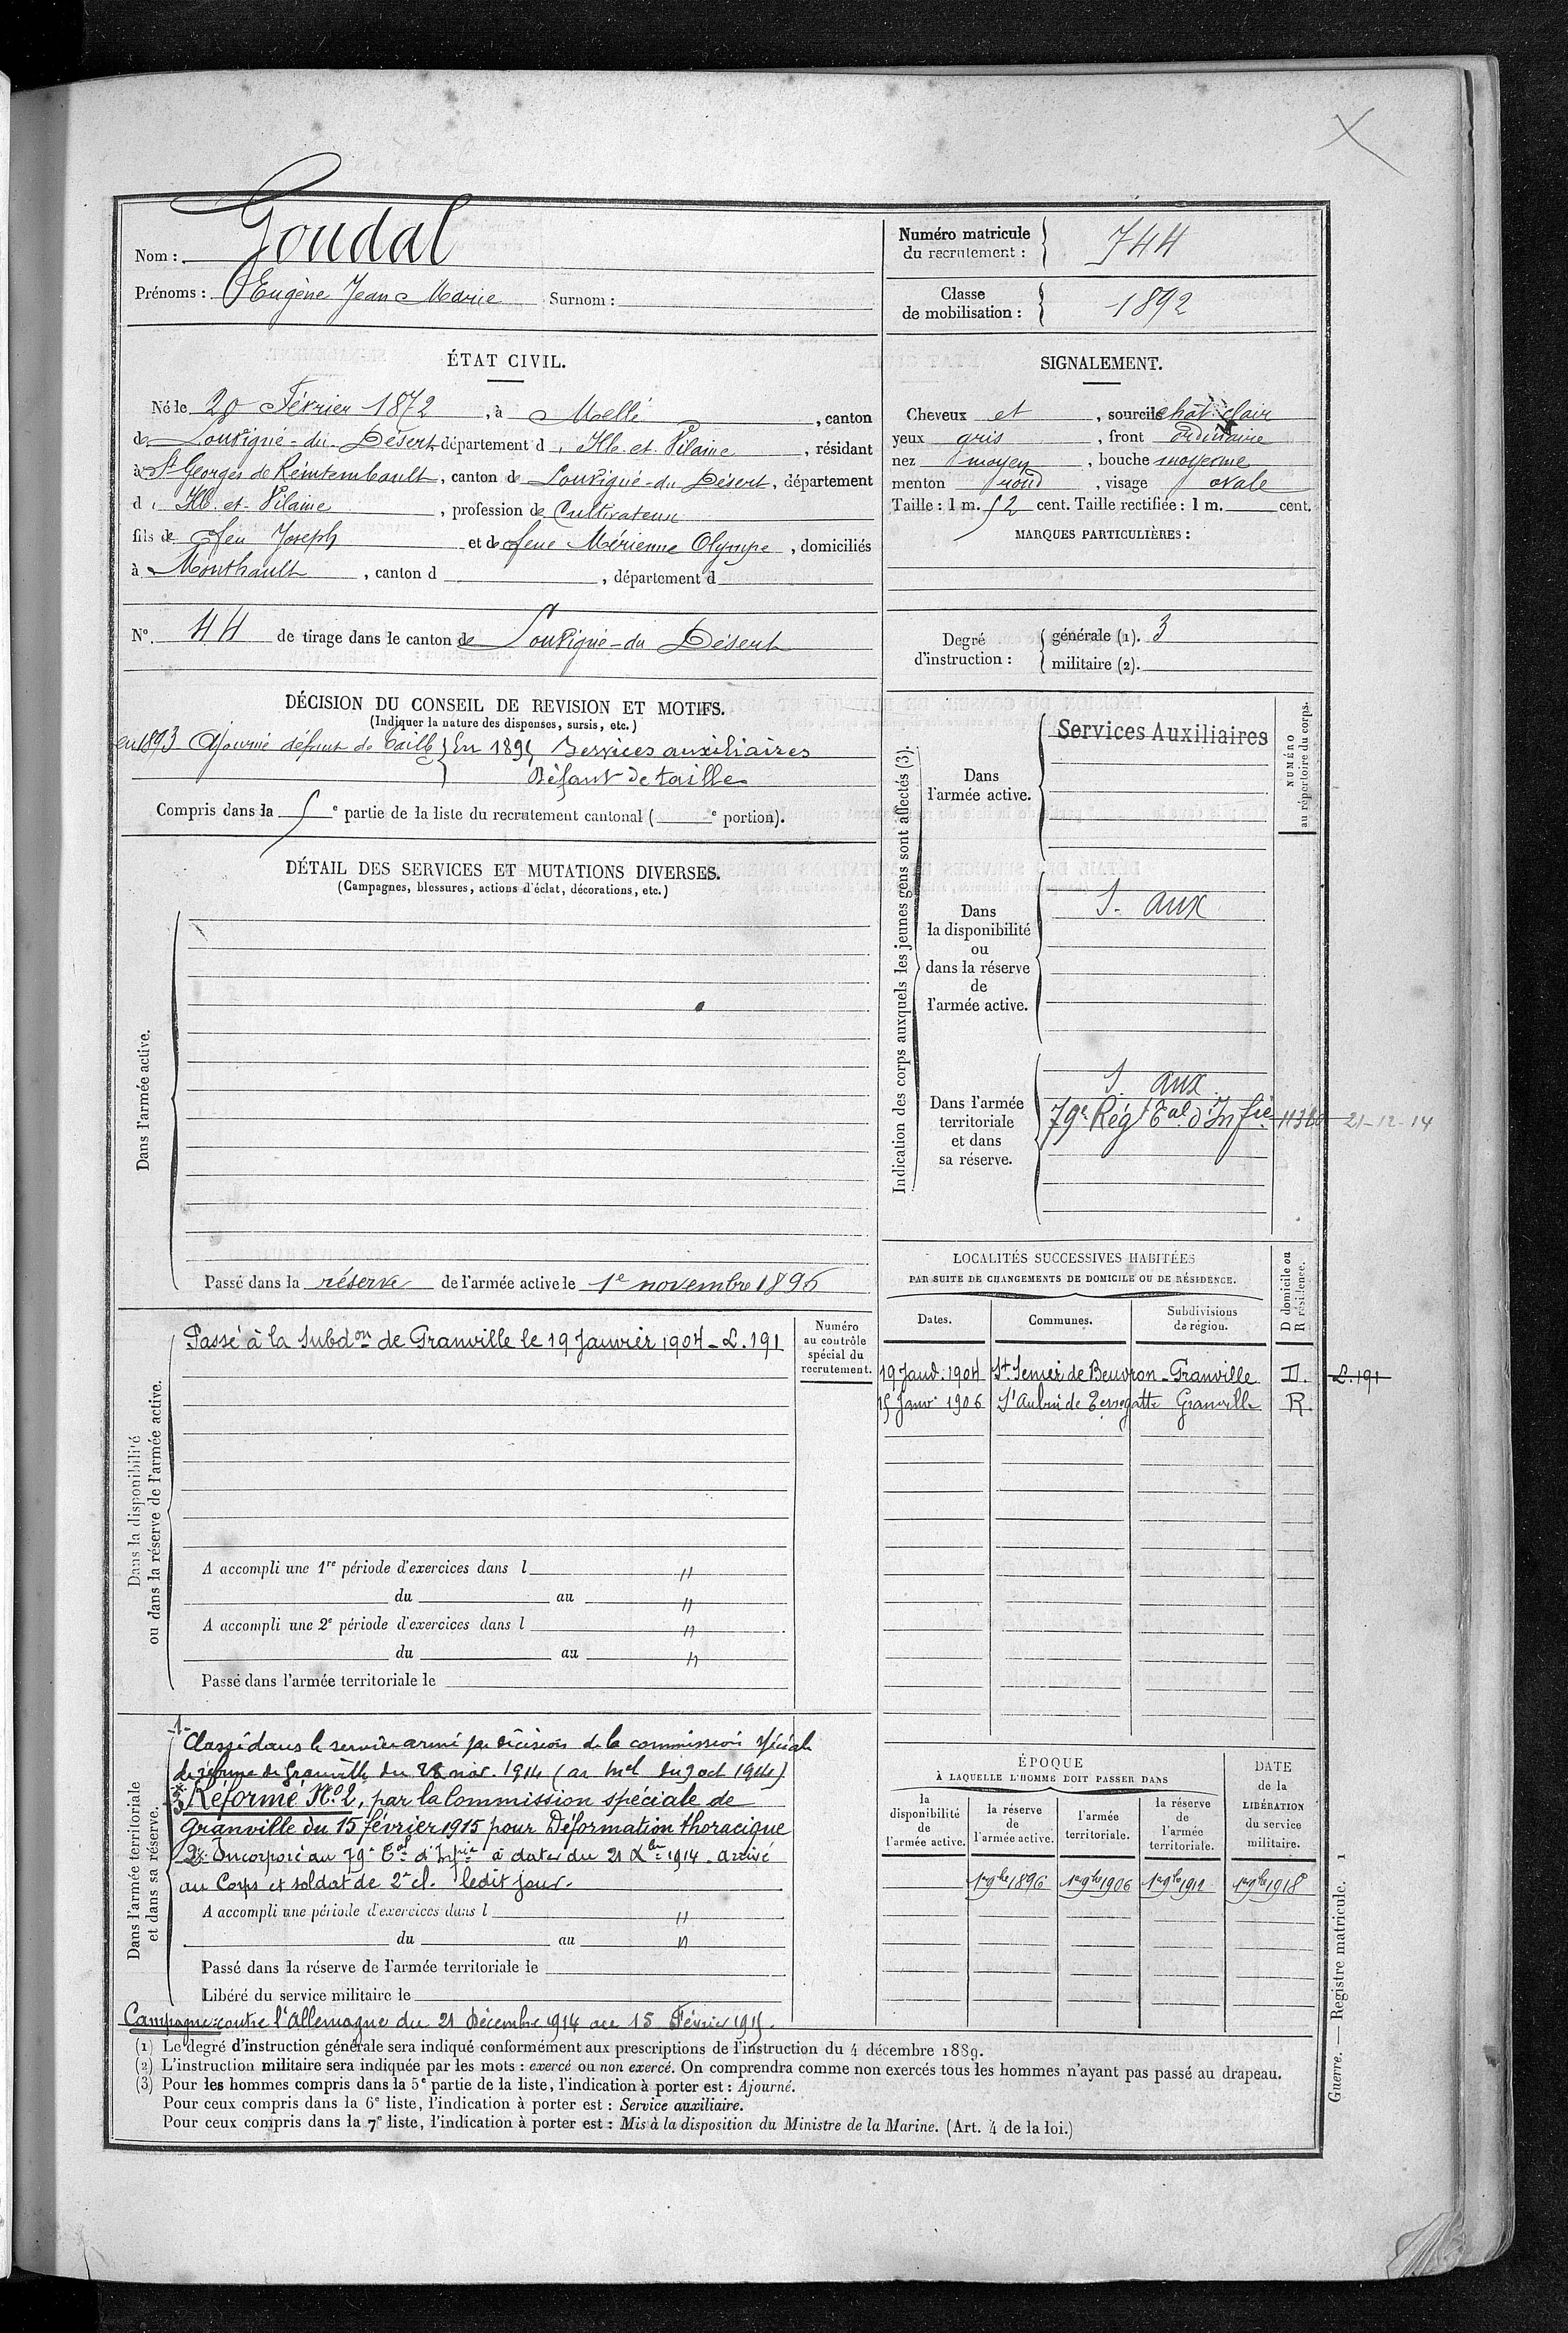 Nom : Goudal
Prénoms : Eugène Jean Marie Surnom :
Numéro matricule du recrutement : 744
Classe de mobilisation : 1892
ÉTAT CIVIL.
Né le 20 Février 1872, à Mellé, canton
de Louvigné-du-Désert, département d'Ille-et-Vilaine, résidant
à St Georges de Reintembault, canton de Louvigné-du-Désert, département
d'Ille-et-Vilaine, profession de Cultivateur
fils de feu Joseph et de feue Mérienne Olympe, domiciliés
à Monthault, canton d , département d
N° 44 de tirage dans le canton de Louvigné-du Désert
SIGNALEMENT.
Cheveux et , sourcils chât. clair
yeux gris , front ordinaire
nez moyen , bouche moyenne
menton rond , visage ovale
Taille : 1 m. 52 cent. Taille rectifiée : 1 m. cent.
MARQUES PARTICULIÈRES :
Degré d'instruction : générale (1). 3
militaire (2).
DÉCISION DU CONSEIL DE REVISION ET MOTIFS.
(Indiquer la nature des dispenses, sursis, etc.)
en 1893 Ajourné défaut de taille } En 1895 Services auxiliaires
Défaut de taille
Compris dans la 5e partie de la liste du recrutement cantonal ( e portion).
DÉTAIL DES SERVICES ET MUTATIONS DIVERSES.
(Campagnes, blessures, actions d'éclat, décorations, etc.)
Dans l'armée active.
Passé dans la réserve de l'armée active le 1e novembre 1896
Indication des corps auxquels les jeunes gens sont affectés (3).
NUMÉRO au répertoire du corps.
Dans l'armée active.
Services Auxiliaires
Dans la disponibilité ou dans la réserve de l'armée active.
S. aux
Dans l'armée territoriale et dans sa réserve.
S. aux
79e Régt Tal d'Infie 21-12-14
LOCALITÉS SUCCESSIVES HABITÉES
PAR SUITE DE CHANGEMENTS DE DOMICILE OU DE RÉSIDENCE.
D domicile ou R résidence.
Dates. Communes. Subdivisions de région.
19 Janv. 1904 St Senier de Beuvron Granville D. L. 191
15 Janv 1906 St Aubin de Terregatte Granville R.
Dans la disponibilité ou dans la réserve de l'armée active.
Numéro au contrôle spécial du recrutement.
Passé à la Subdon de Granville le 19 Janvier 1904 - L. 191
A accompli une 1re période d'exercices dans l "
du au "
A accompli une 2e période d'exercices dans l "
du au "
Passé dans l'armée territoriale le
Dans l'armée territoriale et dans sa réserve.
-1- Classé dans le service armé par décision de la commission spéciale
de réforme de Granville du 28 nov. 1914 (ar mel du 9 oct 1914)
3 Réformé No 2, par la Commission spéciale de
Granville du 15 février 1915 pour Déformation thoracique
2 Incorporé au 79e Tal d'Infie à dater du 21 Xbre 1914 arrivé
au Corps et soldat de 2e cl. ledit jour.
A accompli une période d'exercices dans l "
du au "
Passé dans la réserve de l'armée territoriale le
Libéré du service militaire le
Campagne: contre l'Allemagne du 21 Décembre 1914 au 15 Février 1915.
ÉPOQUE
À LAQUELLE L'HOMME DOIT PASSER DANS
la disponibilité de l'armée active. la réserve de l'armée active. l'armée territoriale. la réserve de l'armée territoriale.
DATE de la LIBÉRATION du service militaire.
1er 9bre 1896 1er 9bre 1906 1er 9bre 1912 1er 9bre 1918
(1) Le degré d'instruction générale sera indiqué conformément aux prescriptions de l'instruction du 4 décembre 1889.
(2) L'instruction militaire sera indiquée par les mots : exercé ou non exercé. On comprendra comme non exercés tous les hommes n'ayant pas passé au drapeau.
(3) Pour les hommes compris dans la 5e partie de la liste, l'indication à porter est : Ajourné.
Pour ceux compris dans la 6e liste, l'indication à porter est : Service auxiliaire.
Pour ceux compris dans la 7e liste, l'indication à porter est : Mis à la disposition du Ministre de la Marine. (Art. 4 de la loi.)
Guerre. — Registre matricule. 1